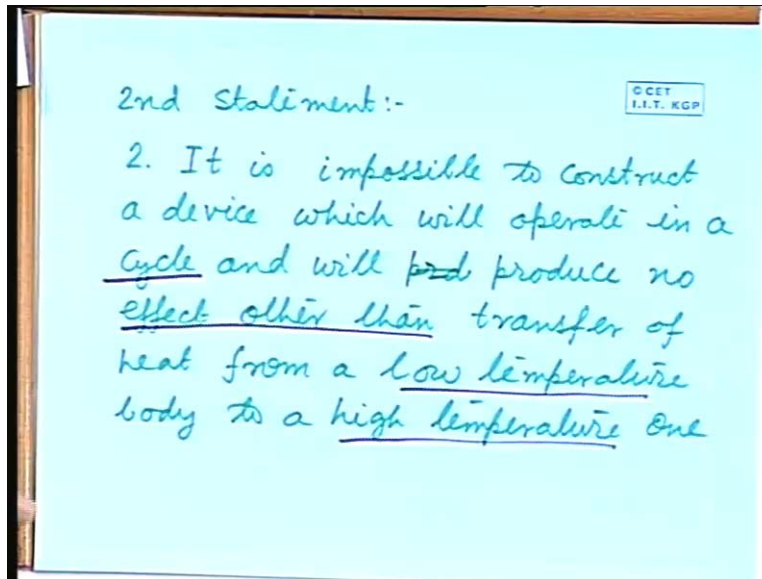 2nd Statement:-
© CET
I.I.T. KGP
2. It is impossible to construct
a device which will operate in a
cycle and will prd produce no
effect other than transfer of
heat from a low temperature
body to a high temperature one